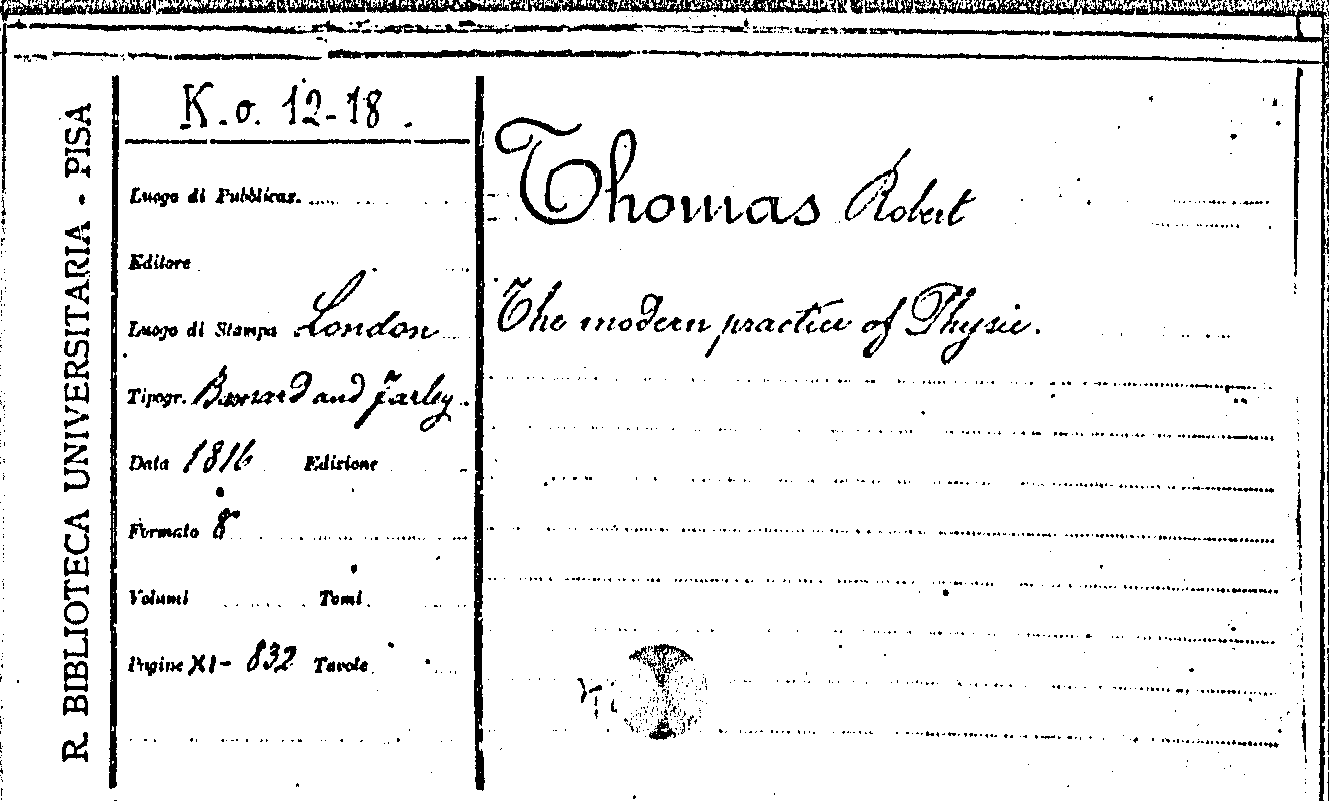 R. BIBLIOTECA UNIVERSITARIA - PISA
K.o. 12-18.
Luogo di Pubblicaz.
Editore
Luogo di Stampa London
Tipogr. Barnard and Farley.
Data 1816 Edizione
Formato 8°
Volumi Tomi
Pagine XI- 832 Tavole
Thomas Robert
The modern practice of Physic.